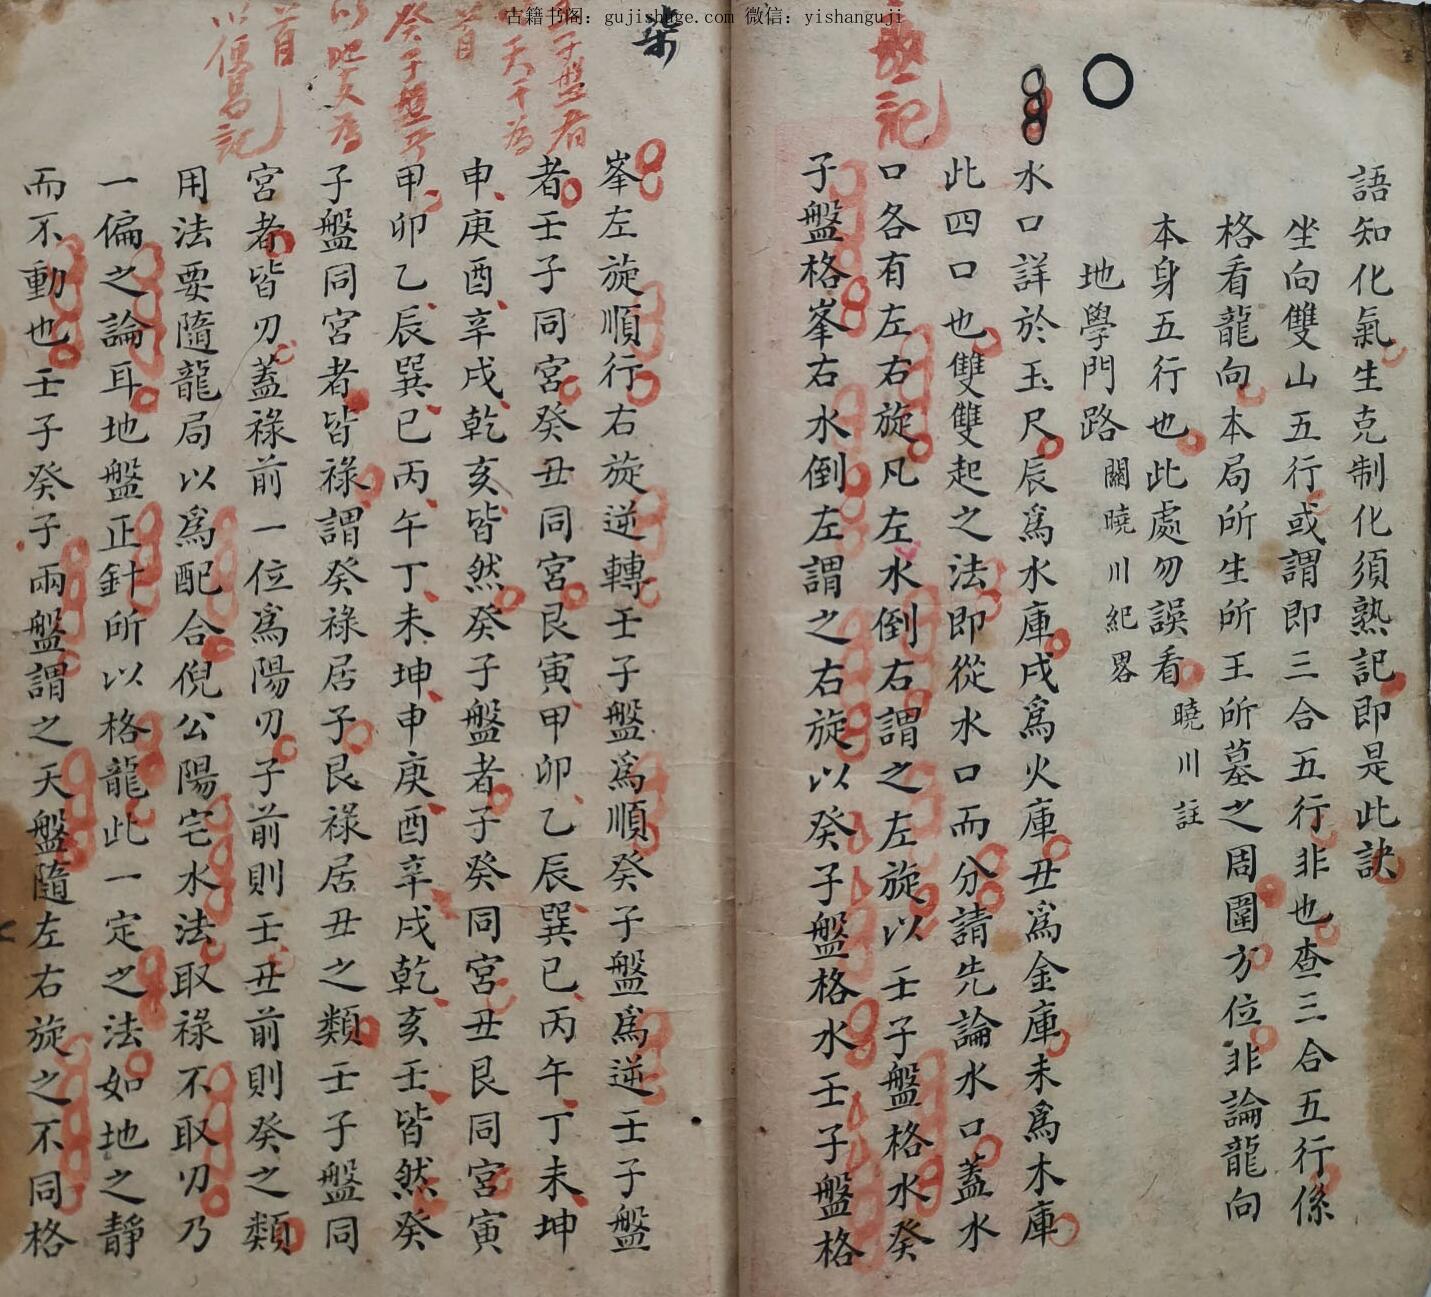 古籍书阁：gujishuge.com 微信：yishanguji
語知化氣生克制化須熟記即是此訣
坐向雙山五行或謂即三合五行非也查三合五行係
格看龍向本局所生所王所墓之周圍方位非論龍向
本身五行也此處勿誤看 曉川註
地學門路 關曉川紀畧
水口詳於玉尺辰爲水庫戌爲火庫丑爲金庫未爲木庫
此四口也雙雙起之法即從水口而分請先論水口蓋水
口各有左右旋凡左水倒右謂之左旋以壬子盤格水癸
子盤格峯右水倒左謂之右旋以癸子盤格水壬子盤格
熟記
柒
峯左旋順行右旋逆轉壬子盤爲順癸子盤爲逆壬子盤
者壬子同宮癸丑同宮艮寅甲卯乙辰巽巳丙午丁未坤
申庚酉辛戌乾亥皆然癸子盤者子癸同宮丑艮同宮寅
甲卯乙辰巽巳丙午丁未坤申庚酉辛戌乾亥壬皆然癸
子盤同宮者皆祿謂癸祿居子艮祿居丑之類壬子盤同
宮者皆刃蓋祿前一位爲陽刃子前則壬丑前則癸之類
用法要隨龍局以爲配合倪公陽宅水法取祿不取刃乃
一偏之論耳地盤正針所以格龍此一定之法如地之靜
而不動也壬子癸子兩盤謂之天盤隨左右旋之不同格
壬子盤者
天干為
首
癸子盤乃
以地支為
首
以便易記